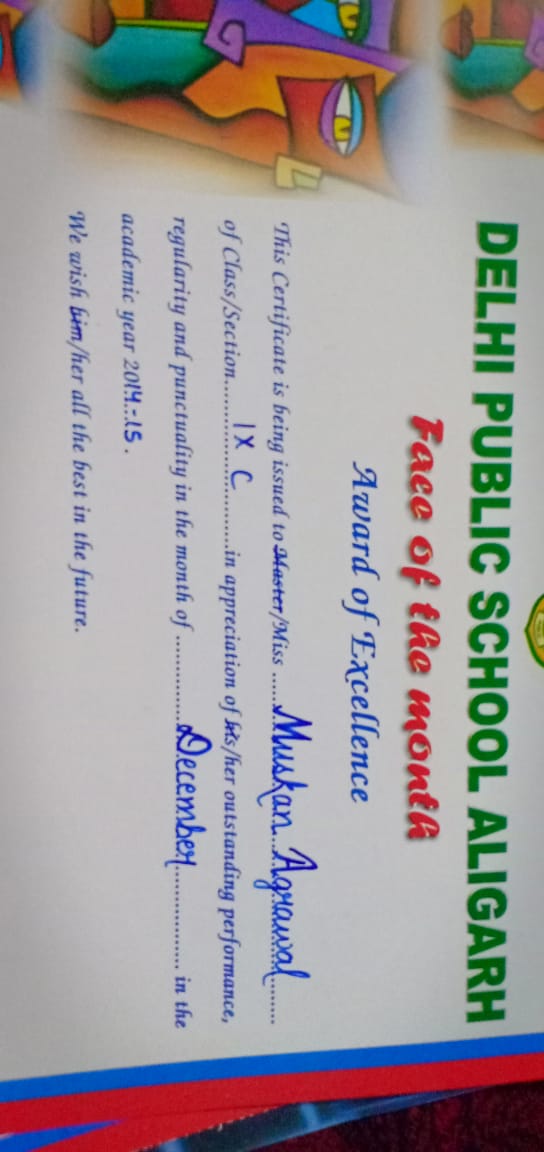 DELHI PUBLIC SCHOOL ALIGARH
Face of the month
Award of Excellence
This Certificate is being issued to Master/Miss ......Muskan Agrawal........
of Class/Section......IX C......in appreciation of his/her outstanding performance,
regularity and punctuality in the month of ............December............... in the
academic year 2014-15.
We wish him/her all the best in the future.